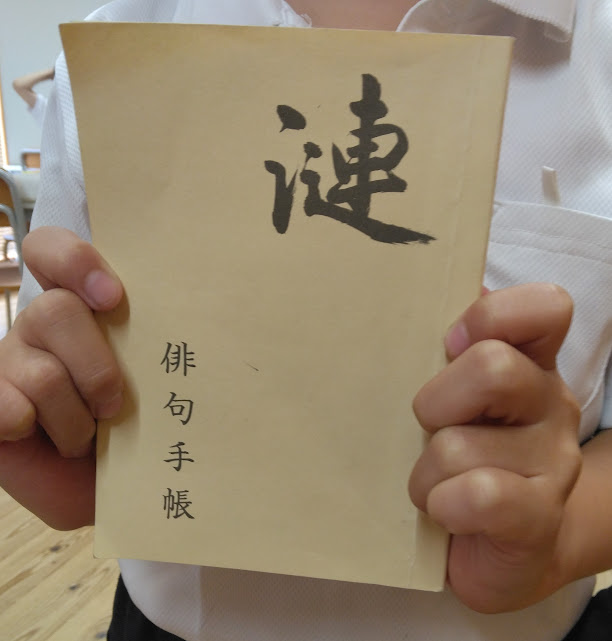 漣
俳句手帳